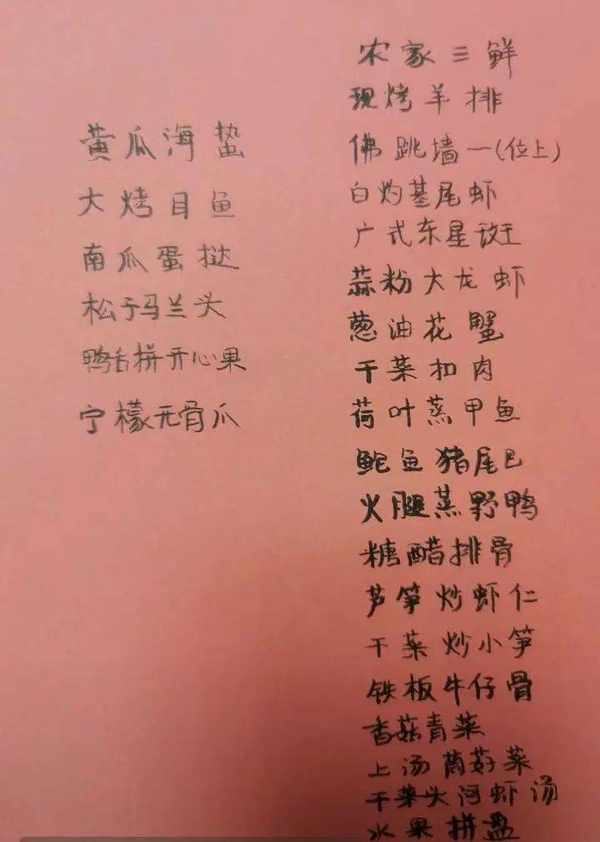 黄瓜海蜇
大烤目鱼
南瓜蛋挞
松子马兰头
鸭舌拼开心果
宁檬无骨爪
农家三鲜
现烤羊排
佛跳墙一(位上)
白灼基尾虾
广式东星斑
蒜粉大龙虾
葱油花蟹
干菜扣肉
荷叶蒸甲鱼
鮀鱼猪尾巴
火腿蒸野鸭
糖醋排骨
芦笋炒虾仁
干菜炒小笋
铁板牛仔骨
香菇青菜
上汤菜
干菜头河虾汤
水果拼盘